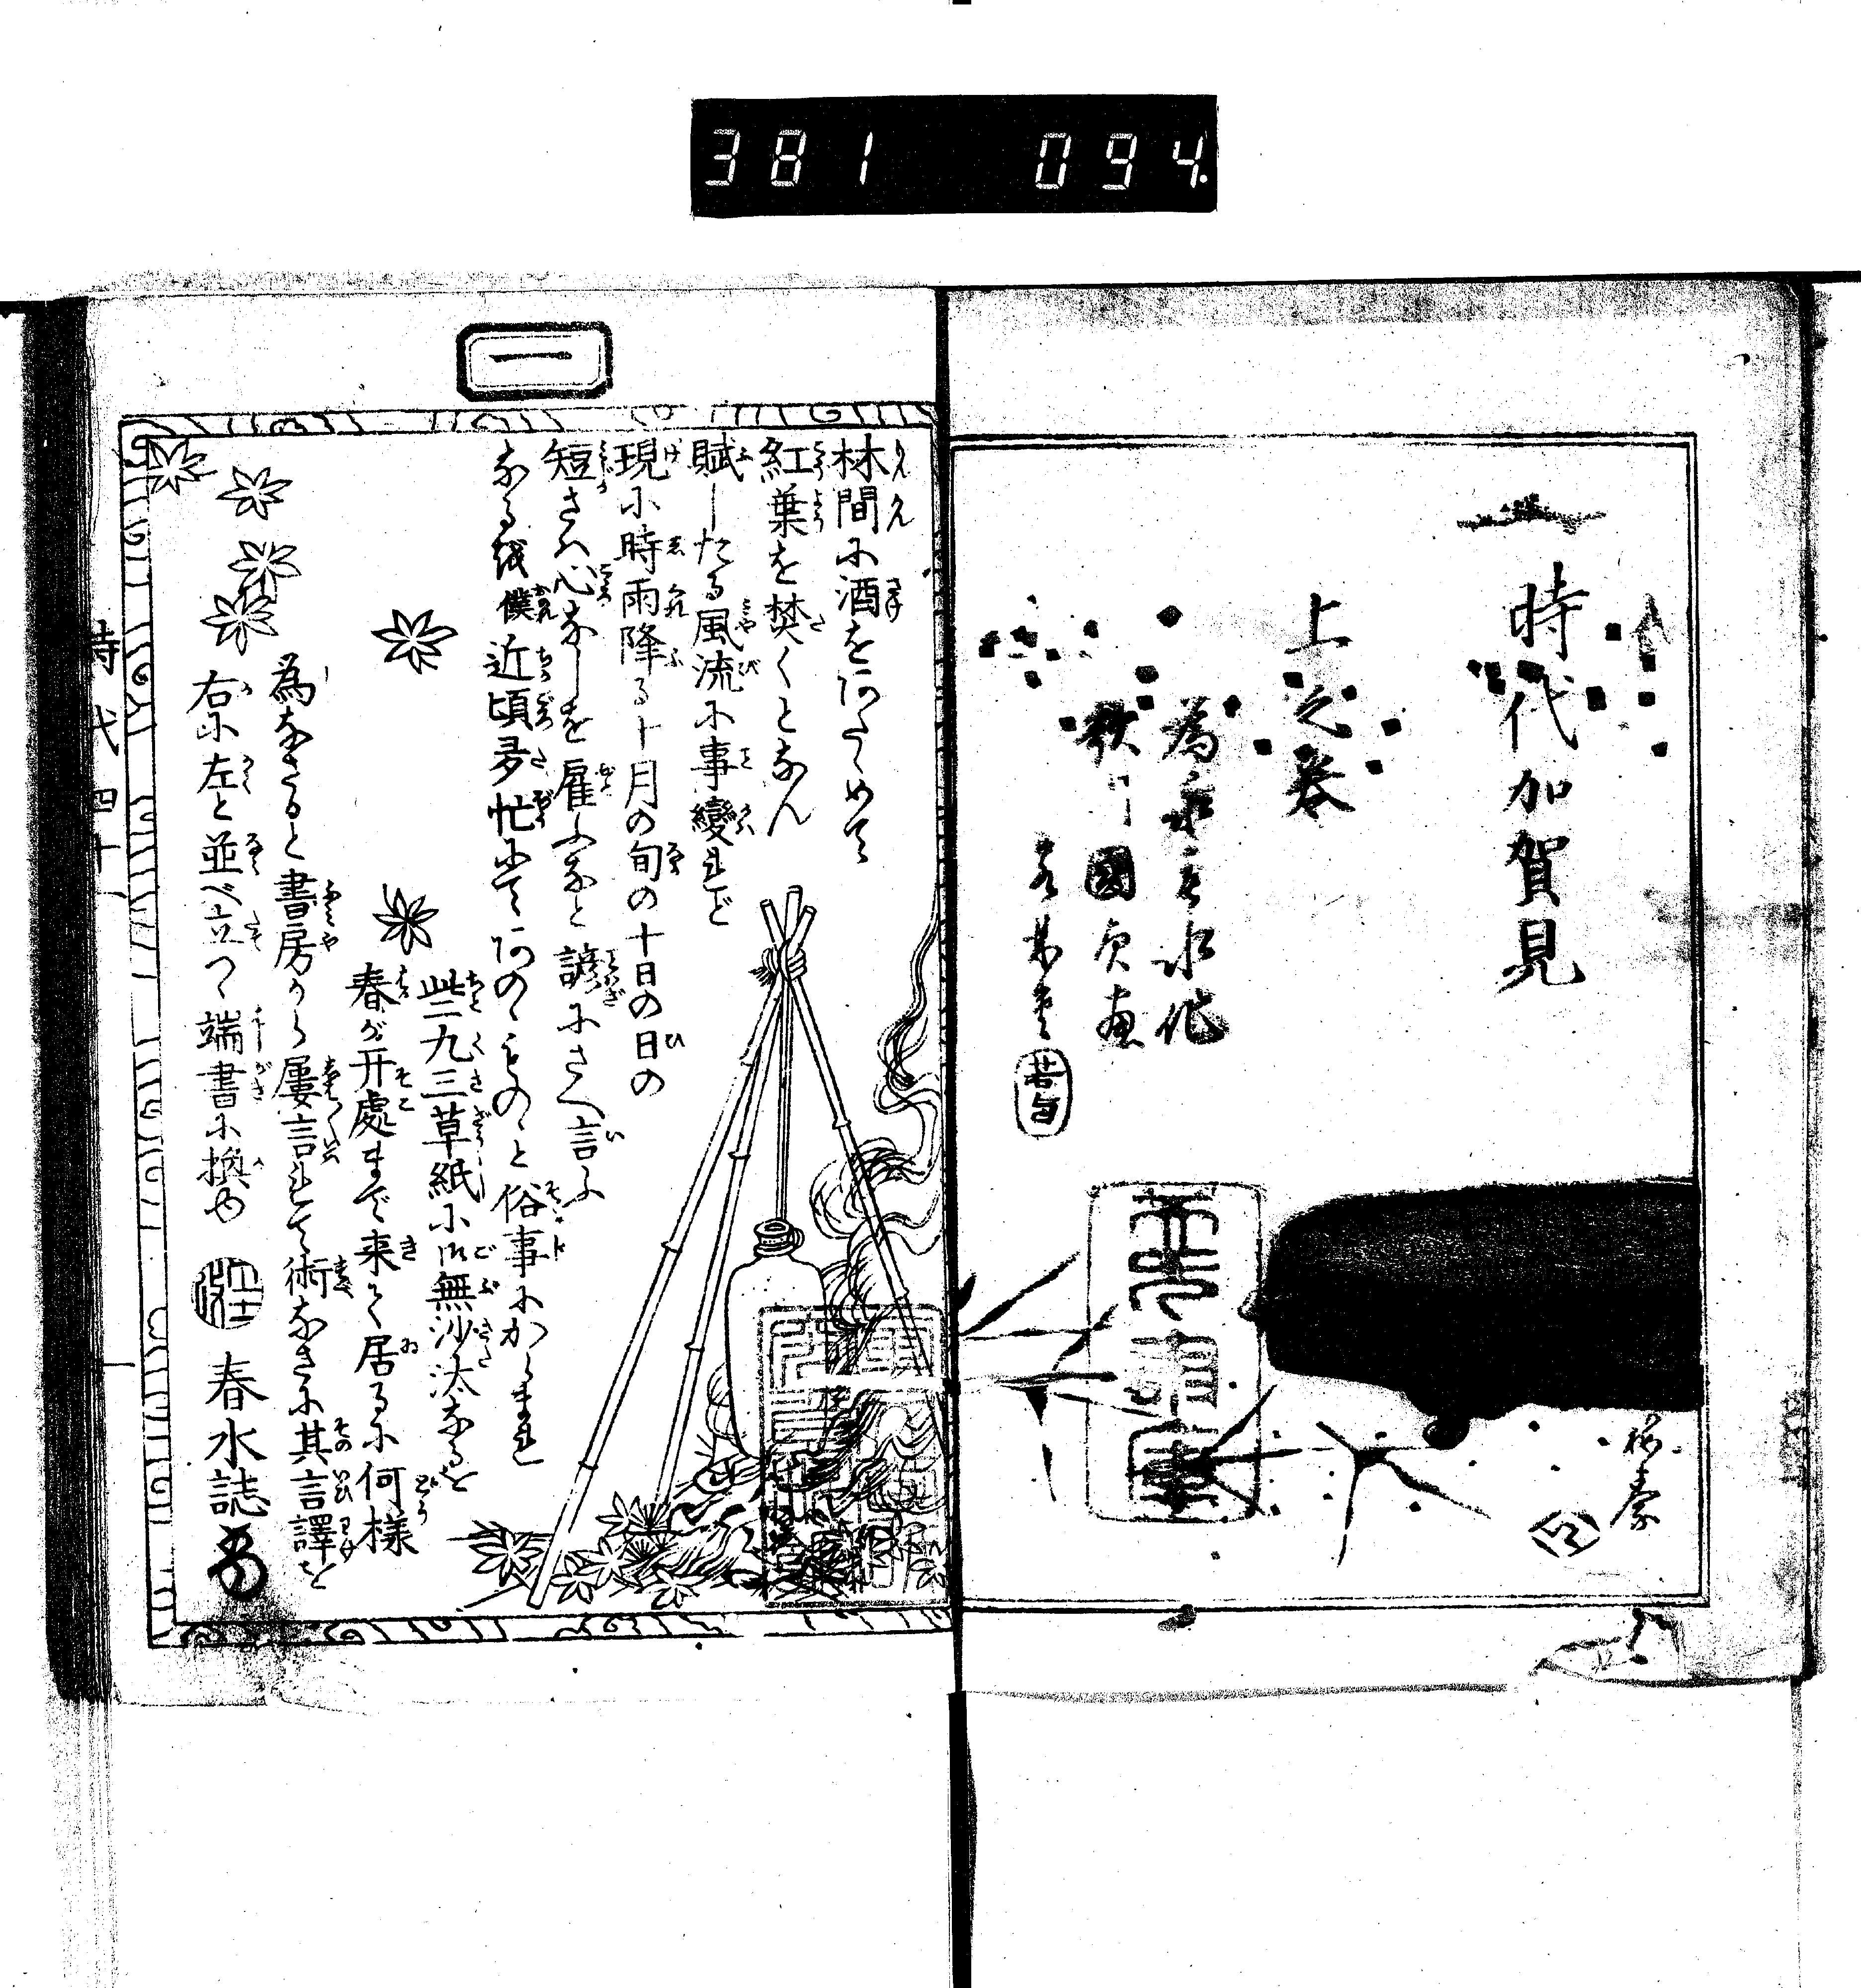 381 094
時代加賀見
上之巻
為永春水作
歌川國貞画
一
林間に酒をあたゝめて
紅葉を焚くとなん
賦したる風流に事變れど
現に時雨降る十月の旬の十日の日の
短さハ心なしを雇ふなと諺にさへ言ふ
なる を僕近頃多忙にてあのゝものゝと俗事にかゝまれ
此二九三草紙に御無沙汰なるを
春が开處まで来て居るに何様
為なさると書房から屡言れて術なさに其言譯を
右に左と並べ立つゝ端書に換ゆ
春水誌
時代四十